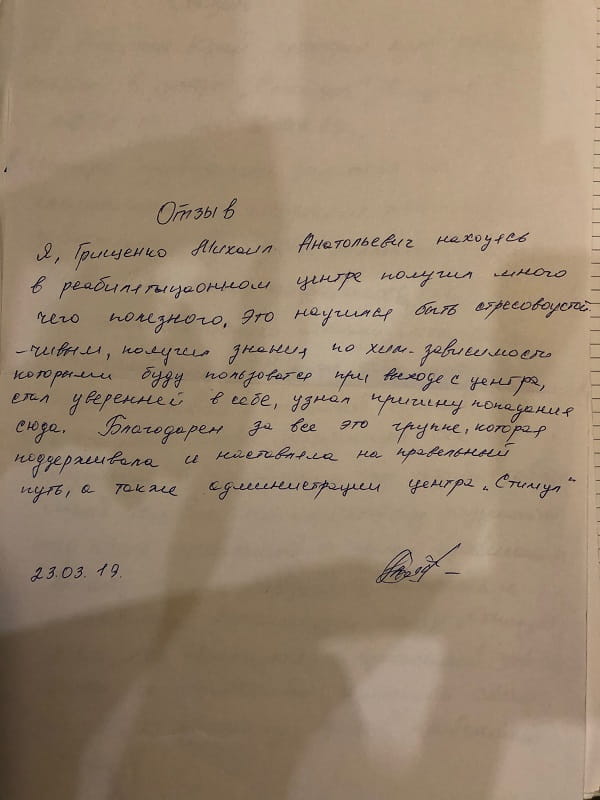 Отзыв
Я, Грищенко Михаил Анатольевич находясь
в реабилятыцаонном центре получил много
чего полезного. Это научился быть стресовоустой
-чивым, получил знания по хим. зависимости
которыми буду пользоватся при выходе с центра,
стал уверенней в себе, узнал причину попадания
сюда. Благодарен за все это группе, которая
поддерживала и наставляла на правельный
путь, а также администрации центра „Стимул"
23.03.19.